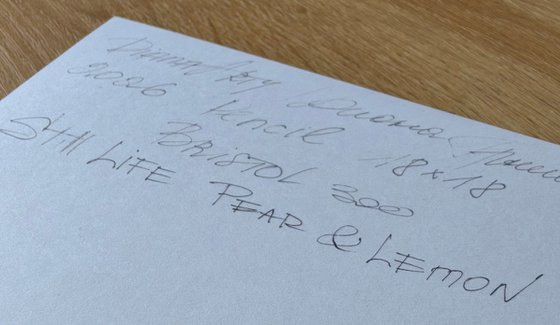 by
2026 Pencil 18x18
BRiSTOL 300
Still LiFE PEAR & LEMON